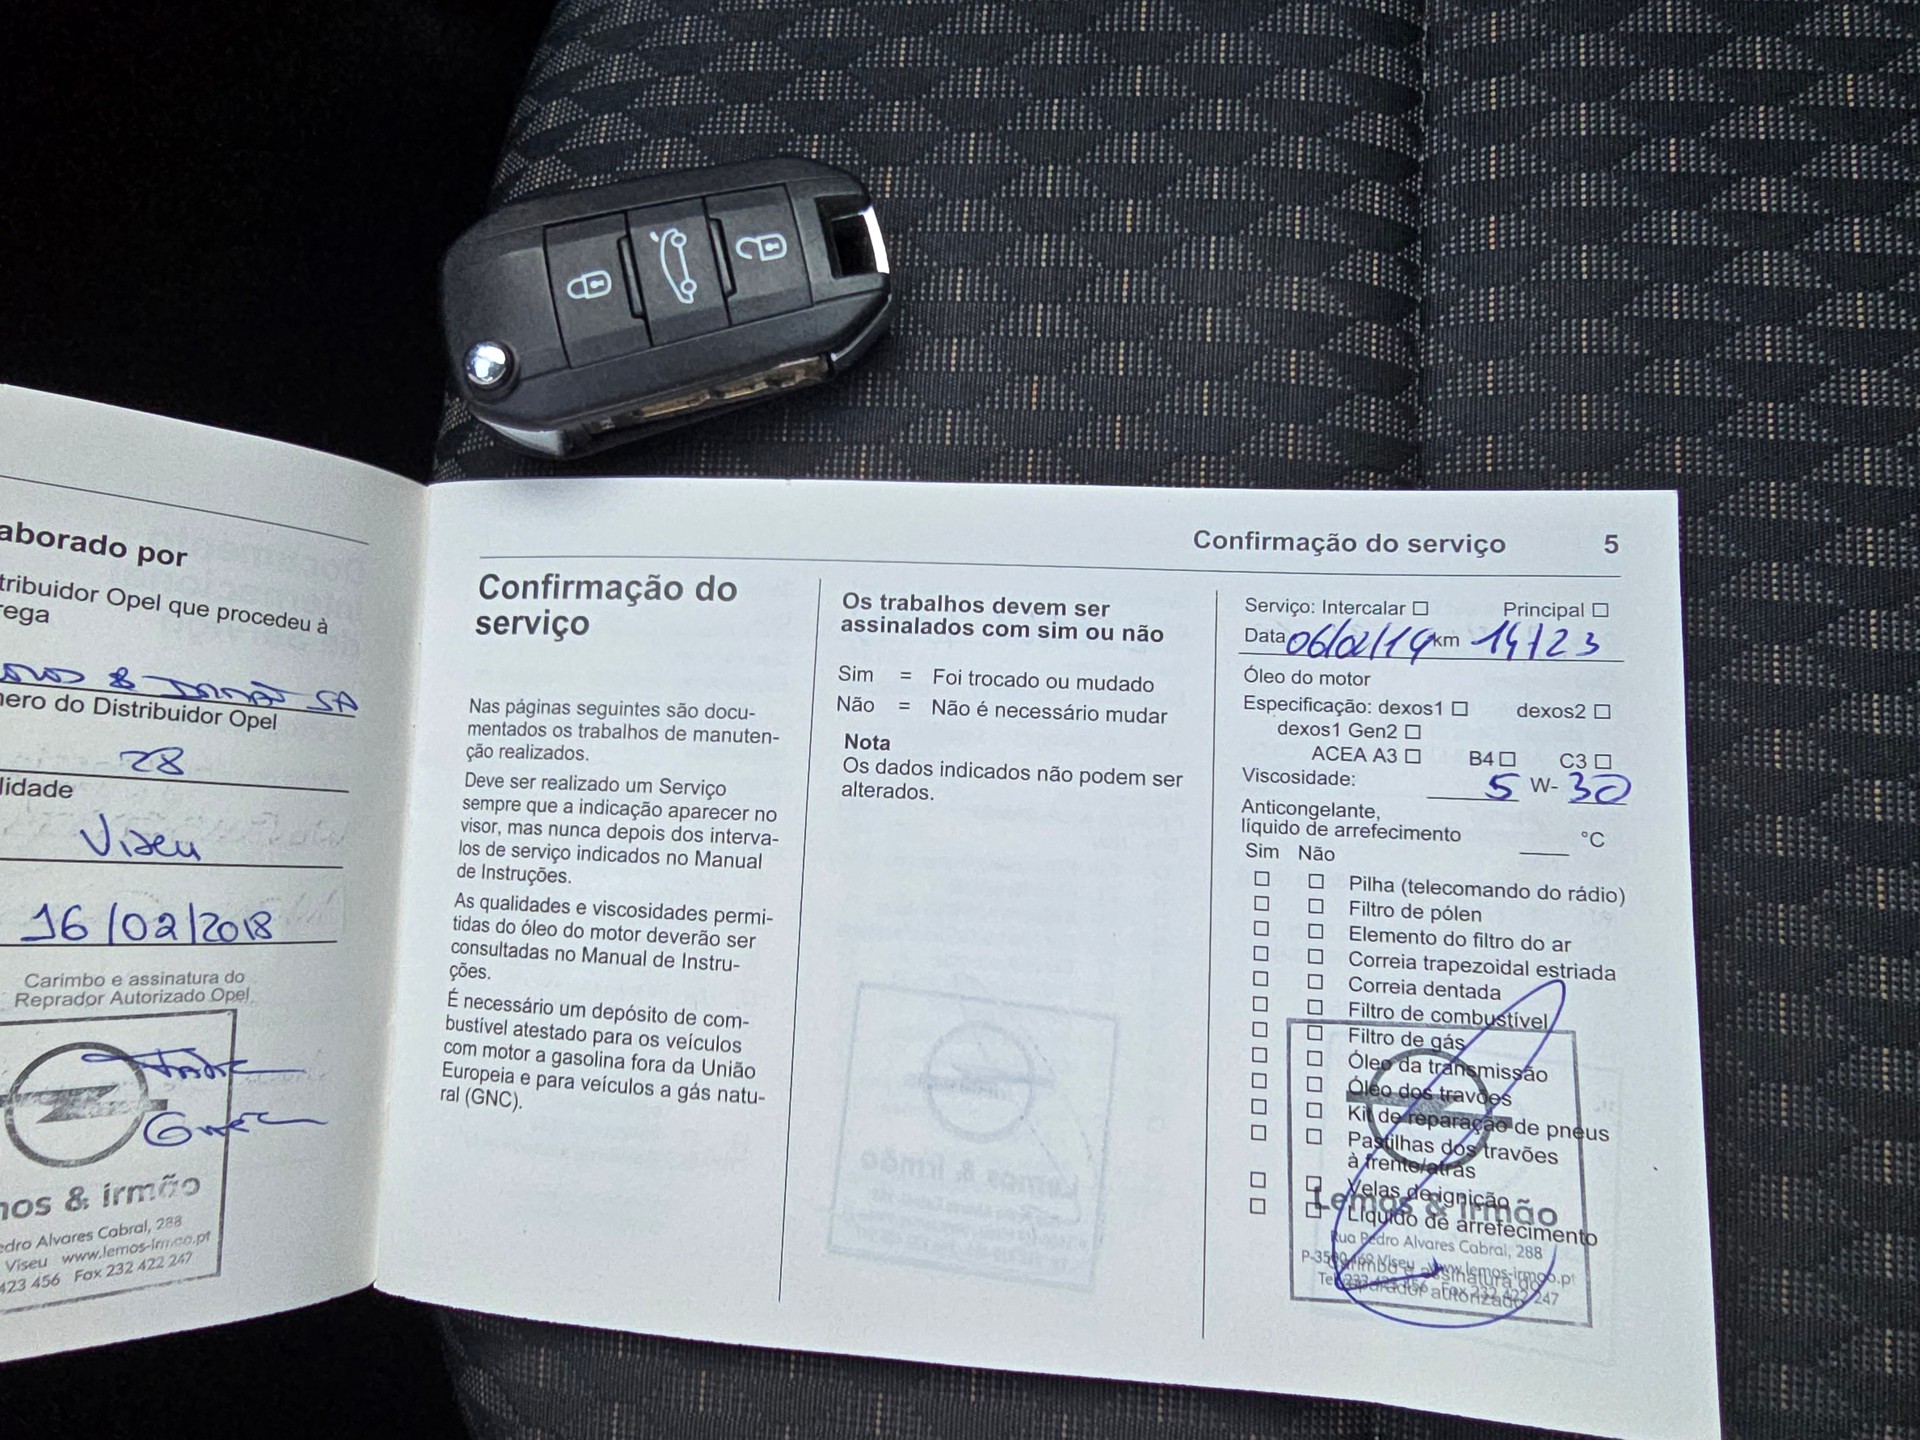 aborado por
tribuidor Opel que procedeu à
rega
& SA
nero do Distribuidor Opel
28
lidade
Viseu
16/02/2018
Carimbo e assinatura do
Reprador Autorizado Opel
mos & irmão
edro Alvares Cabral, 288
Viseu www.lemos-irmao.pt
423 456 Fax 232 422 247
Confirmação do serviço 5
Confirmação do
serviço
Nas páginas seguintes são docu-
mentados os trabalhos de manuten-
ção realizados.
Deve ser realizado um Serviço
sempre que a indicação aparecer no
visor, mas nunca depois dos interva-
los de serviço indicados no Manual
de Instruções.
As qualidades e viscosidades permi-
tidas do óleo do motor deverão ser
consultadas no Manual de Instru-
ções.
É necessário um depósito de com-
bustível atestado para os veículos
com motor a gasolina fora da União
Europeia e para veículos a gás natu-
ral (GNC).
Os trabalhos devem ser
assinalados com sim ou não
Sim = Foi trocado ou mudado
Não = Não é necessário mudar
Nota
Os dados indicados não podem ser
alterados.
Serviço: Intercalar ☐ Principal ☐
Data 06/02/19 km 14123
Óleo do motor
Especificação: dexos1 ☐ dexos2 ☐
dexos1 Gen2 ☐
ACEA A3 ☐ B4 ☐ C3 ☐
Viscosidade: 5 W- 30
Anticongelante,
líquido de arrefecimento °C
Sim Não
☐ ☐ Pilha (telecomando do rádio)
☐ ☐ Filtro de pólen
☐ ☐ Elemento do filtro do ar
☐ ☐ Correia trapezoidal estriada
☐ ☐ Correia dentada
☐ ☐ Filtro de combustível
☐ ☐ Filtro de gás
☐ ☐ Óleo da transmissão
☐ ☐ Óleo dos travões
☐ ☐ Kit de reparação de pneus
☐ ☐ Pastilhas dos travões
à frente/atrás
☐ ☐ Velas de ignição
☐ ☐ Líquido de arrefecimento
Lemos & irmão
Rua Pedro Alvares Cabral, 288
Viseu www.lemos-irmao.pt
Carimbo e assinatura do
reparador autorizado
Fax 232 422 247